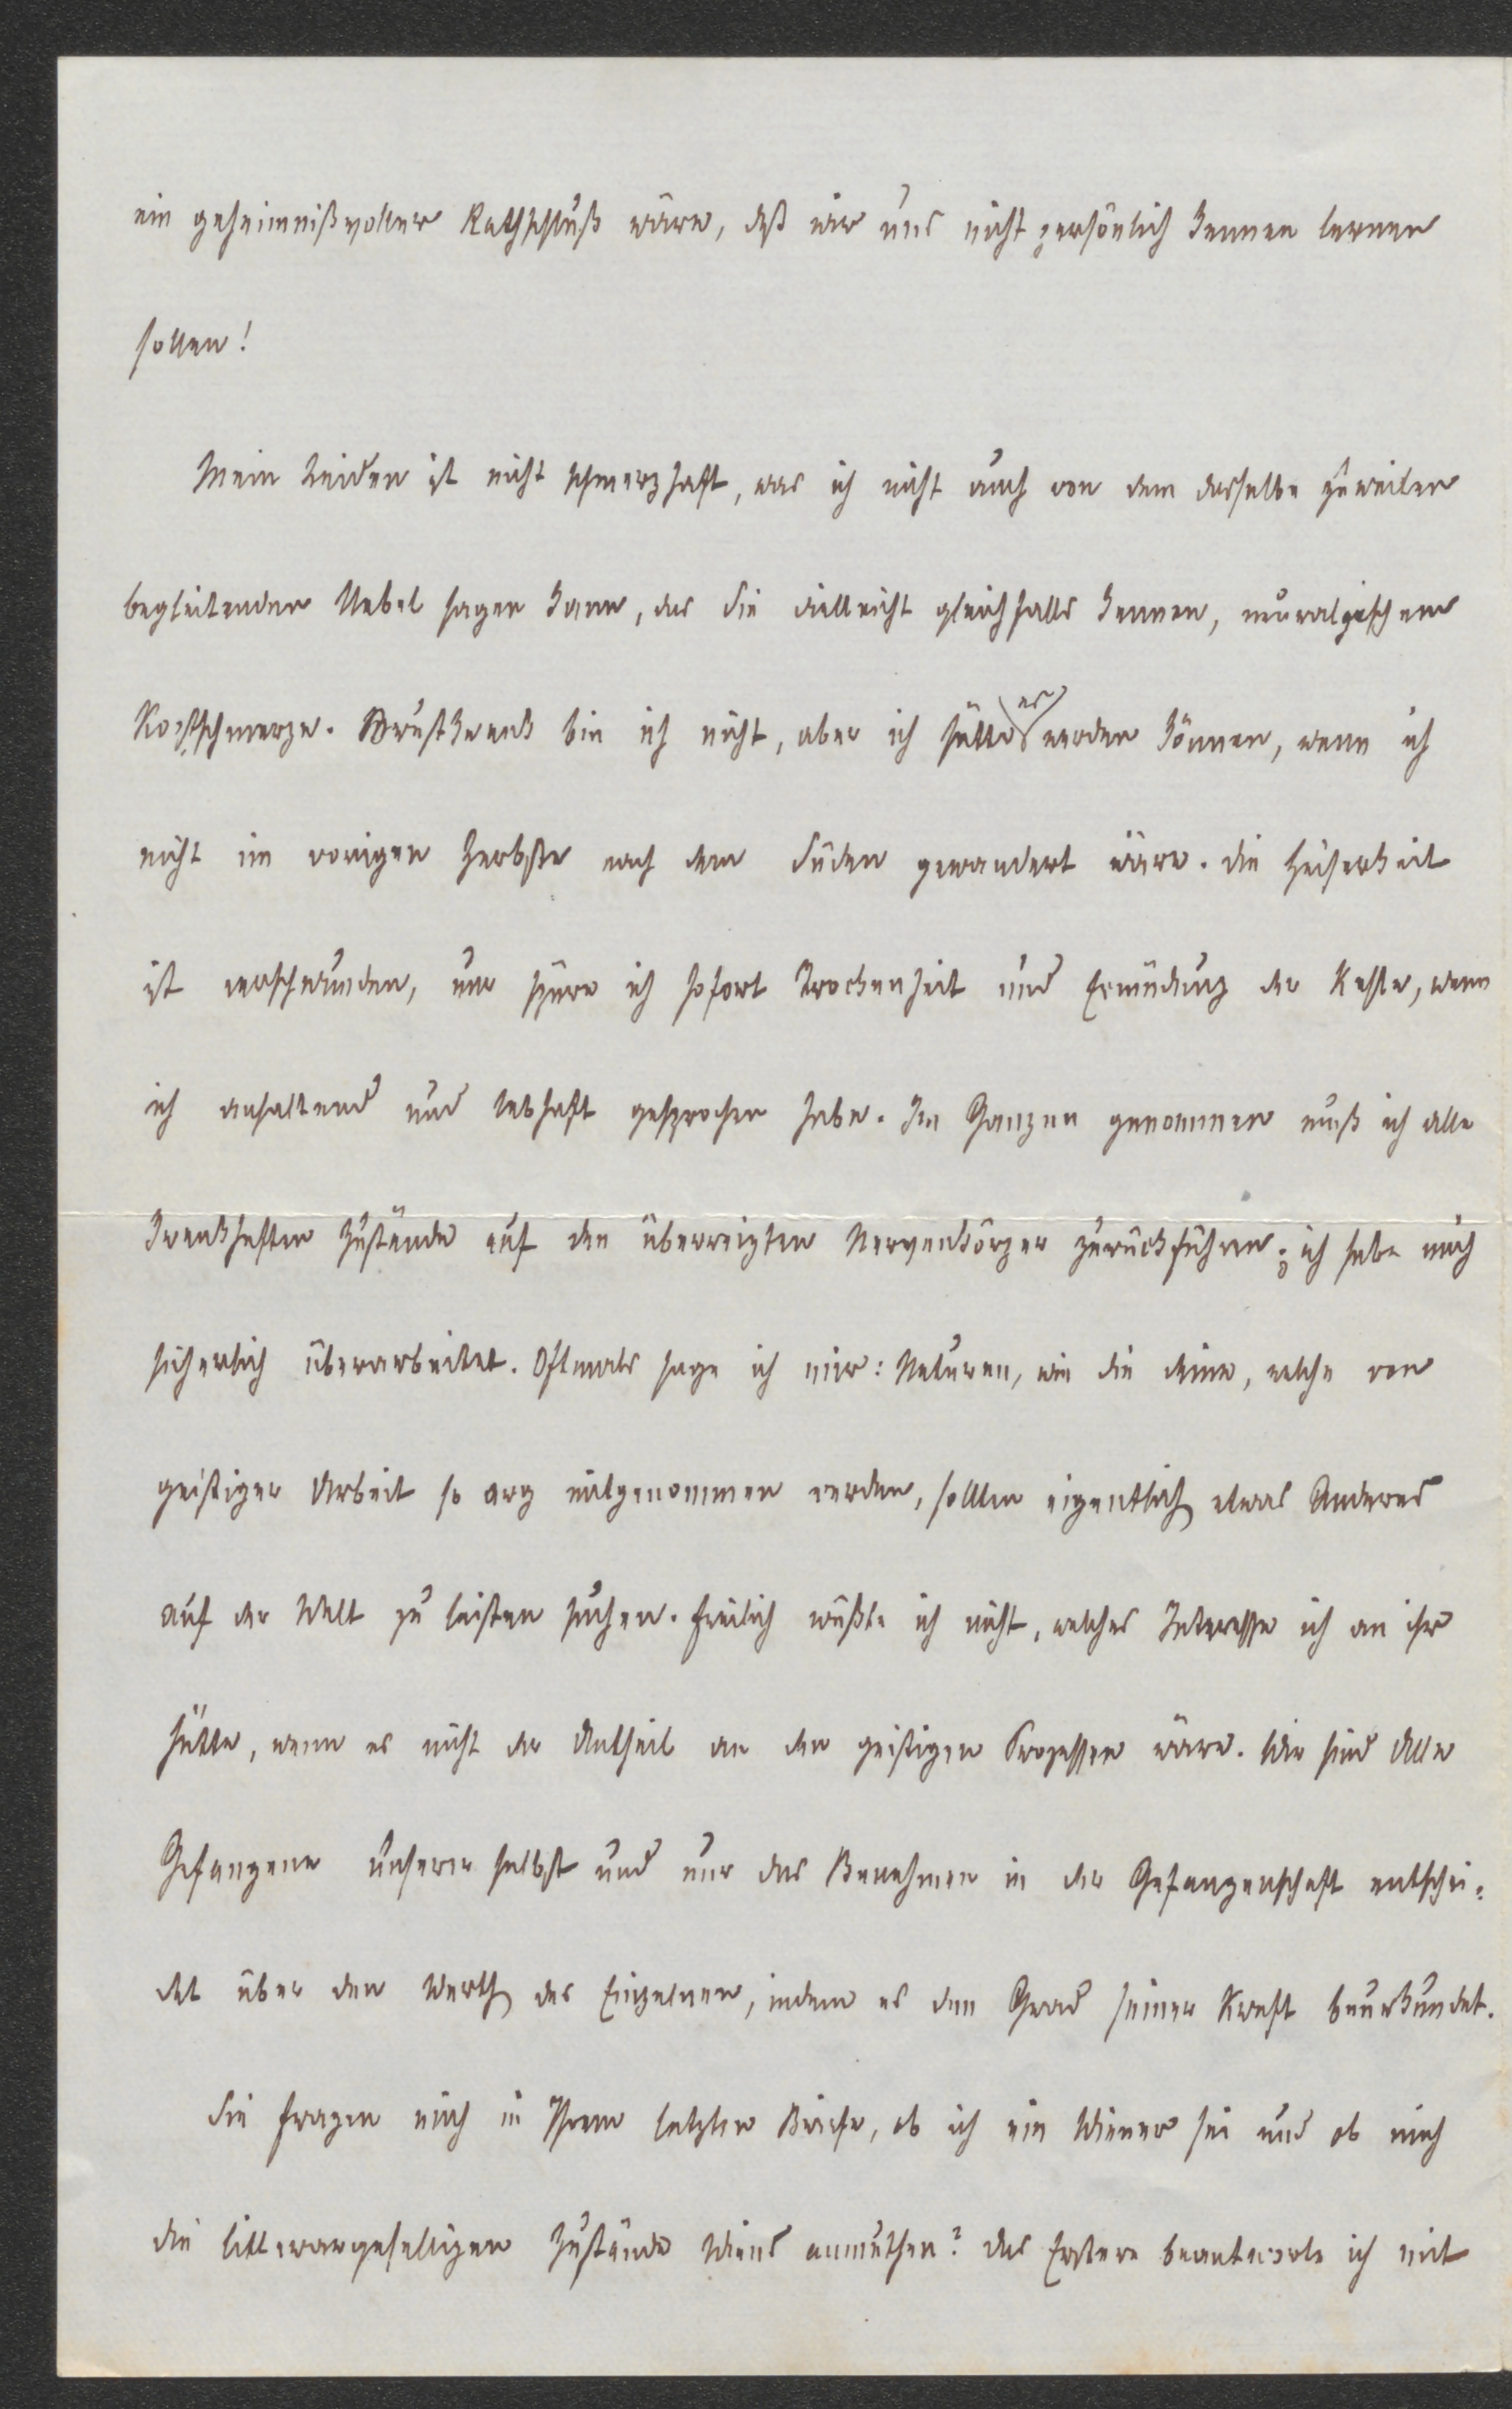 ein geheimnißvoller Rathschluß wäre, daß wir uns nicht persönlich kennen lernen
sollen!
Mein Leiden ist nicht schmerzhaft, was ich nicht auch von dem dasselbe zuweilen
begleitenden Uebel sagen kann, das Sie vielleicht gleichfalls kennen, neuralgischem
Kopfschmerze. Brustkrank bin ich nicht, aber ich hätte es werden können, wenn ich
nicht im vorigen Herbste nach dem Süden gewandert wäre. Die Heiserkeit
ist verschwunden, nur spüre ich sofort Trockenheit und Ermüdung der Kehle, wenn
ich anhaltend und lebhaft gesprochen habe. Im Ganzen genommen muß ich alle
krankhaften Zustände auf den überreizten Nervenkörper zurückführen; ich habe mich
sicherlich überarbeitet. Oftmals sage ich mir: Naturen, wie die deine, welche von
geistiger Arbeit so arg mitgenommen werden, sollten eigentlich etwas Anderes
auf der Welt zu leisten suchen. Freilich wüßte ich nicht, welches Interesse ich an ihr
hätte, wenn es nicht der Antheil an den geistigen Prozessen wäre. Wir sind Alle
Gefangene unserer selbst und nur das Benehmen in der Gefangenschaft entschei-
det über den Werth des Einzelnen, indem es den Grad seiner Kraft beurkundet.
Sie fragen mich in Ihrem letzten Briefe, ob ich ein Wiener sei und ob mich
die litterargeselligen Zustände Wiens anmuthen? Das Erstere beantworte ich mit